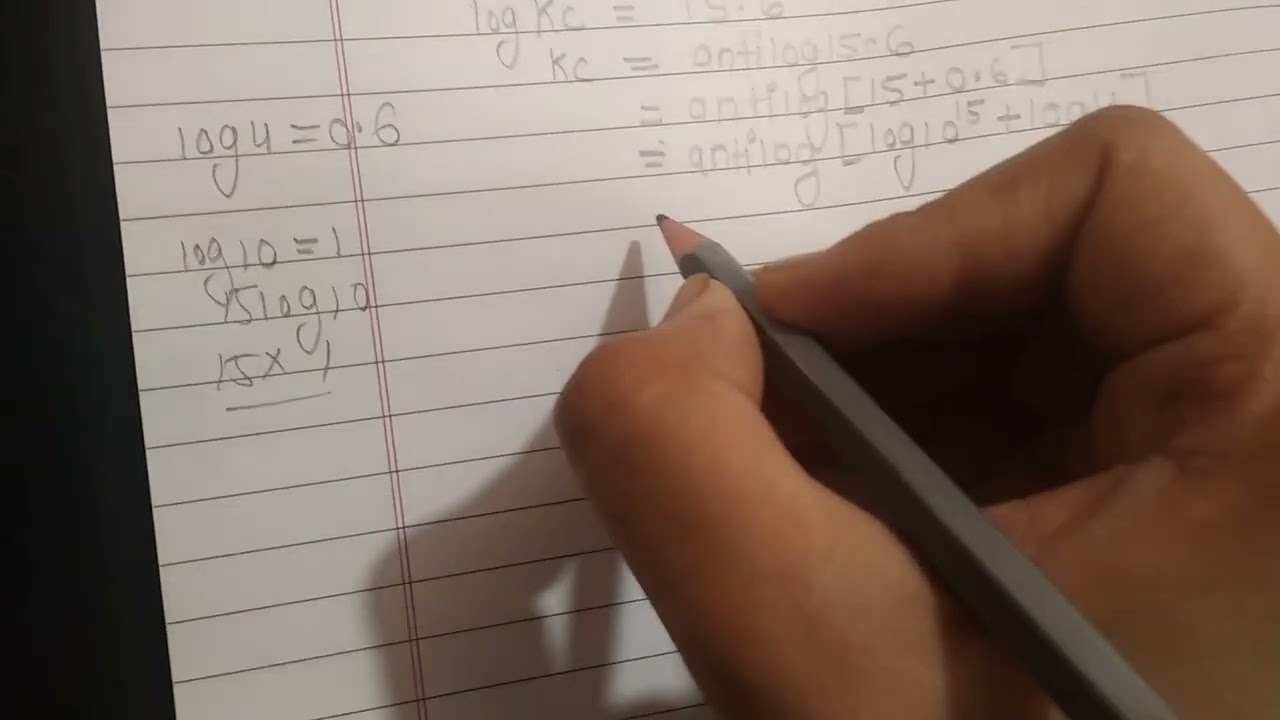 log Kc = 15.6
Kc = antilog 15.6
= antilog [15 + 0.6]
= antilog [log10¹⁵ + log4]
log4 = 0.6
log10 = 1
15log10
15 × 1